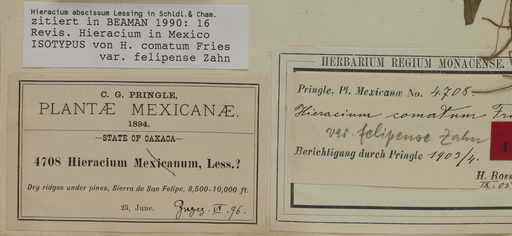 Hieracium abscissum Lessing in Schldl.& Cham.
zitiert in BEAMAN 1990: 16
Revis. Hieracium in Mexico
ISOTYPUS von H. comatum Fries
var. felipense Zahn
C. G. PRINGLE,
PLANTÆ MEXICANÆ.
1894.
STATE OF OAXACA
4708 Hieracium Mexicanum, Less.?
Dry ridges under pines, Sierra de San Felipe, 8,500-10,000 ft.
25, June.
VI. 96.
HERBARIUM REGIUM MONACENSE.
Pringle, Pl. Mexicanæ No. 4708.
Hieracium comatum Fr
var felipense Zahn
Berichtigung durch Pringle 1903/4.
H. Ross
IX. 05